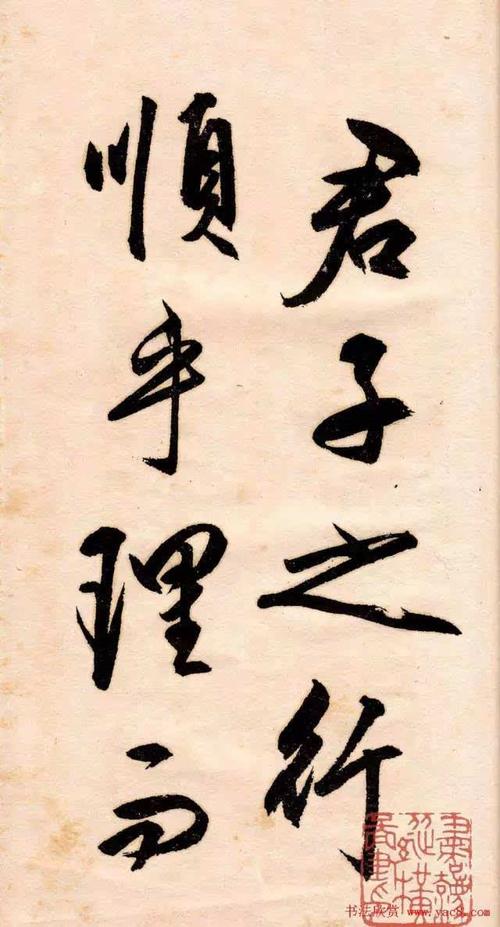 君子之行
順乎理而
书法欣赏 www.yac8.com